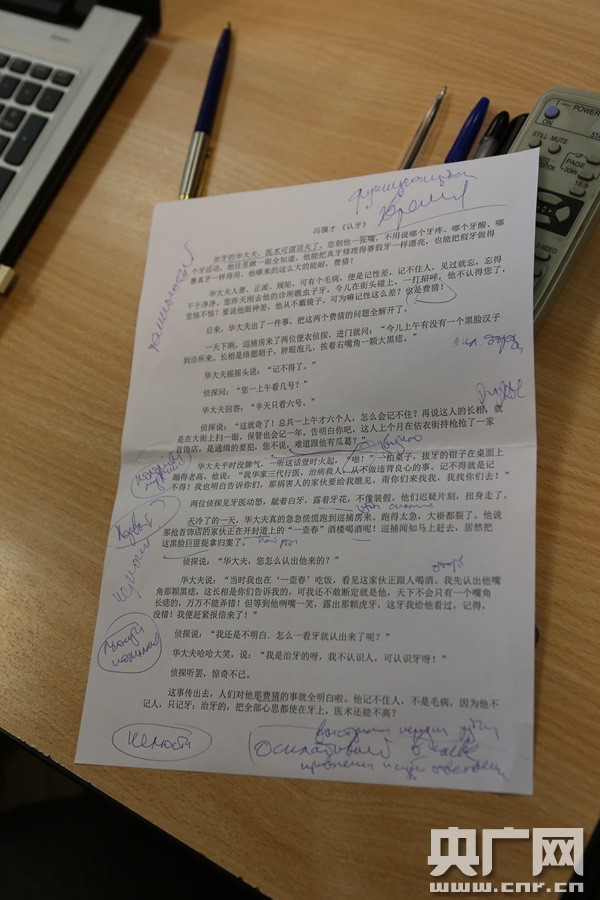 冯骥才 《认牙》
治牙的华大夫，医术可谓顶天了。您朝他一张嘴，不用说哪个牙疼、哪个牙酸、哪
个牙活动，他往里瞅一眼全知道。他能把真牙修理得赛假牙一样漂亮，也能把假牙做得
赛真牙一样得用。他哪来的这么大的能耐，费猜！
华大夫人善、正派、规矩，可有个毛病，便是记性差，记不住人，见过就忘，忘得
干干净净。您昨天刚去他的诊所瞧虫子牙，今儿在街头碰上，一打招呼，他不认得您了，
您恼不恼？要说他眼神差，他从不戴镜子，可为嘛记性这么差？也是费猜！
后来，华大夫出了一件事，把这两个费猜的问题全解开了。
一天下晌，巡捕房来了两位便衣侦探，进门就问："今儿上午有没有一个黑脸汉子
到诊所来。长相是络腮胡子，肿眼泡儿，挨着右嘴角一颗大黑痣。"
华大夫摇摇头说："记不得了。"
侦探问："您一上午看几号？"
华大夫回答："半天只看六号。"
侦探说："这就奇了！总共一上午才六个人，怎么会记不住？再说这人的长相，就
是在大街上扫一眼，保管也会记一年。告明白你吧，这人上个月在估衣街持枪抢了一家
首饰店，是通缉的要犯。您不说，难道跟他有瓜葛？"
华大夫平时没脾气，一听这话登时火起，"啪！"一拍桌子，拔牙的钳子在桌面上
蹦得老高。他说："我华家三代行医，治病救人，从不做违背良心的事。记不得就是记
不得！我也明白告诉你们，那祸害人的家伙要给我瞧见，甭你们来找我，我找你们去！"
两位侦探见牙医动怒，龇着白牙，露着牙花，不像装假。他们迟疑片刻，扭身走了。
天冷了的一天，华大夫真的急急慌慌跑到巡捕房来，跑得太急，大褂都裂了。他说
那抢首饰店的家伙正在开封道上的"一壶春"酒楼喝酒呢！巡捕闻知马上赶去，居然把
这黑脸巨匪捉拿归案了。
侦探说："华大夫，您怎么认出他来的？"
华大夫说："当时我也在'一壶春'吃饭，看见这家伙正跟人喝酒。我先认出他嘴
角那颗黑痣，这长相是你们告诉我的，可我还不敢断定就是他，天下不会只有一个嘴角
长痣的，万万不能弄错！但等到他咧嘴一笑，露出那颗虎牙，这牙我给他看过，记得，
没错！我便赶紧报信来了！"
侦探说："我还是不明白，怎么一看牙就认出来了呢？"
华大夫哈哈大笑，说："我是治牙的呀，我不认识人，可认识牙呀！"
侦探听罢，惊奇不已。
这事传出去，人们对他那费猜的事就全明白啦。他记不住人，不是毛病，因为他不
记人，只记牙；治牙的，把全部心思都使在牙上，医术还能不高？
челюсти
POWER
STILL
MUTE
PAGE
16:9
央广网
www.cnr.cn